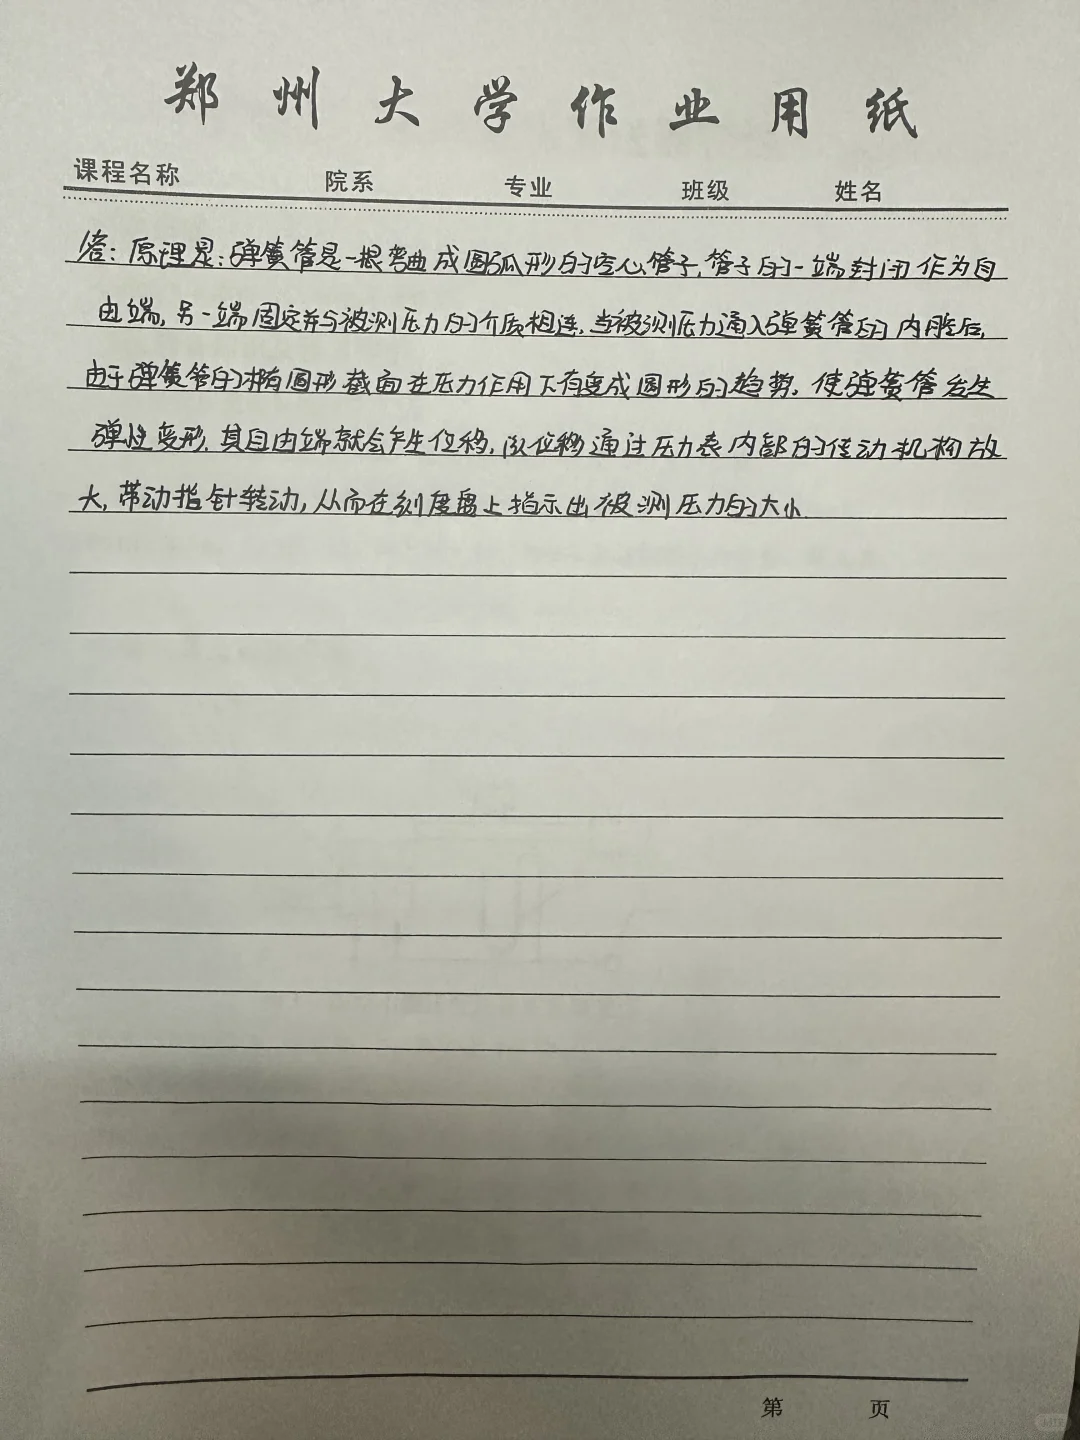 郑州大学作业用纸
课程名称 院系 专业 班级 姓名
答:原理是:弹簧管是一根弯曲成圆弧形的空心管子,管子的一端封闭作为自
由端,另一端固定并与被测压力的介质相连,当被测压力通入弹簧管的内腔后,
由于弹簧管的椭圆形截面在压力作用下有变成圆形的趋势,使弹簧管发生
弹性变形,其自由端就会产生位移,位移通过压力表内部的传动机构放
大,带动指针转动,从而在刻度盘上指示出被测压力的大小.
第 页